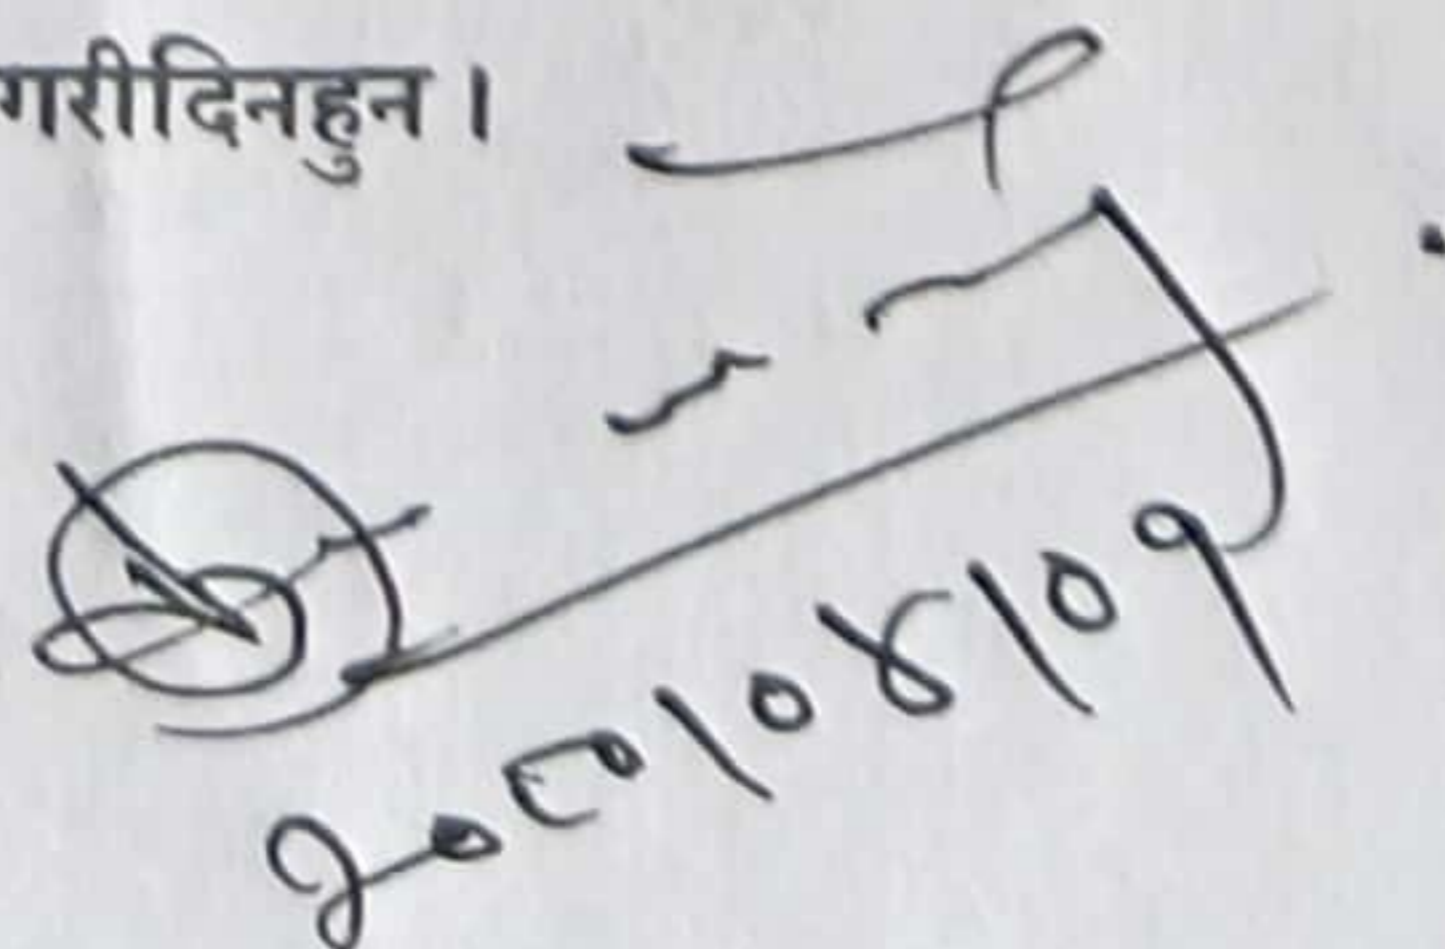 गरीदिनहुन ।
२०८०।०४।०१